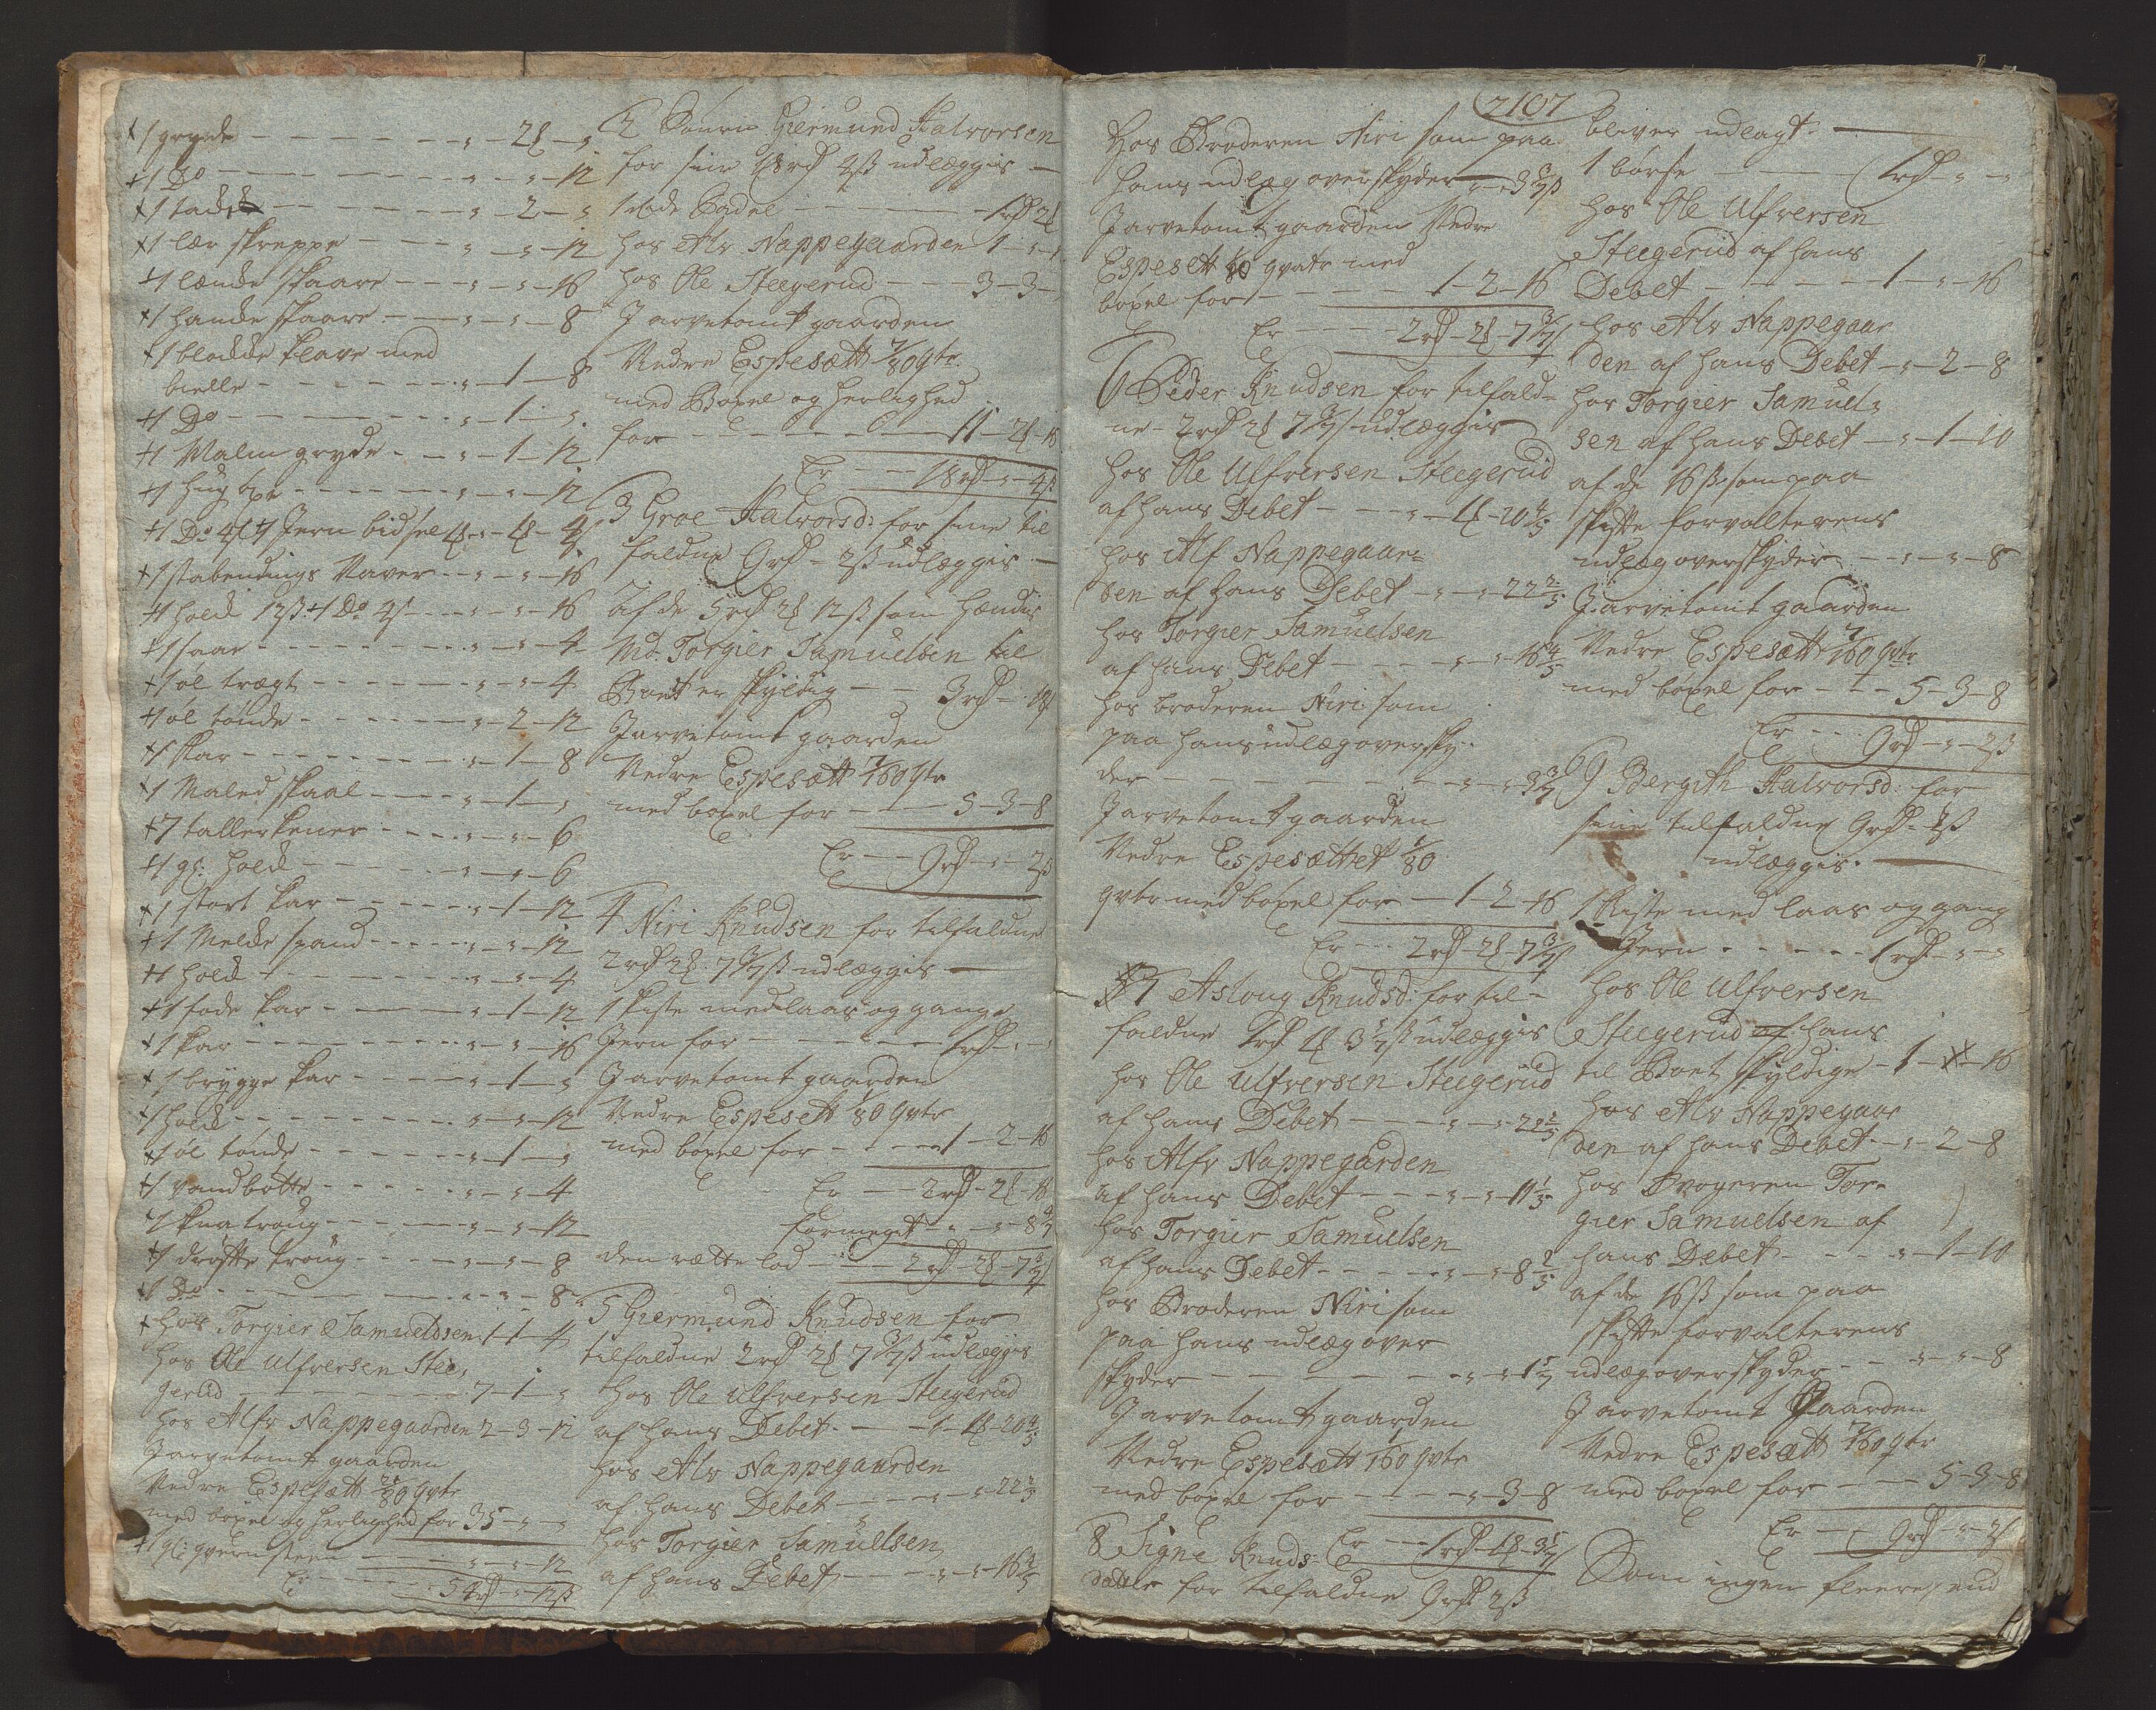 1 gryde - - - - - „ - 2 ß - „
1 Do - - - - - „ - „ - 12
1 - - - - - „ - 2 - „
1 lær skreppe - - - „ - „ - 12
1 lænde skaare - - - „ - „ - 16
1 hande skaare - - - „ - „ - 8
1 blodde klave med
bielle - - - - - „ - 1 - 8
1 Do - - - - - „ - 1 - „
1 Malm gryde - - - „ - 1 - 12
1 hug øxe - - - - „ - „ - 12
1 Do 4 ß 1 Jern bidsel
1 Naver - - „ - „ - 16
1 hold 12 ß 1 Do 4 ß - - „ - „ - 16
1 saae - - - - - „ - „ - 4
1 øl tragt - - - - „ - „ - 4
1 øl tønde - - - - „ - 2 - 12
1 kar - - - - - „ - 1 - 8
1 Maled skaal - - - „ - 1 - „
7 tallerkener - - - „ - „ - 6
1 gl: hold - - - „ - „ - 6
1 stort kar - - - - „ - 1 - 12
1 Melcke spand - - - „ - „ - 12
1 hold - - - - - „ - „ - 4
1 fode kar - - - - „ - 1 - 12
1 kar - - - - - „ - „ - 16
1 brygge kar - - - „ - 1 - „
1 hold - - - - - „ - „ - 12
1 øl tønde - - - - „ - 1 - „
1 vandbøtte - - - - „ - „ - 4
1 kna troug - - - - „ - „ - 12
1 drøfte troug - - - „ - „ - 8
1 Do - - - - - „ - „ - 8
hos Torgier Samuelssen 1 - 1 - 4
hos Ole Ulfversen Stee-
gerud - - - - - 7 - 1 - „
hos Alfv Nappegaarden 2 - 3 - 12
J arvetomt gaarden
Nedre Espesætt 21/80 qvtr
med bøxel og herlighed for 35 - „ - „
1 gl: qvernsteen - - - „ - „ - 12
Er - - - 54 rd - „ - 12 ß
2 Sønnen Giermund Halvorsen
for sine 18 rd 4 ß udlæggis -
1 røde Sadel - - - 1 rd 2
hos Alv Nappegaarden 1 - „ - „
hos Ole Steegerud - - - 3 - 3 - „
J arvetomt gaarden
Nedre Espesætt 7/80 qtr
med Bøxel og herlighed
for - - - - - 11 - 2 - 16
Er - - 18 rd - „ - 4 ß
3 Groe Halvorsd: for sine til
faldne 9 rd - 2 ß udlæggis -
af de 5 rd 2 12 ß som
Md. Torgier Samuelsen til
Boet er skyldig - - 3 rd - 18
J arvetomt gaarden
Nedre Espesætt 7/160 qtr
med bøxel for - - 5 - 3 - 8
Er - - 9 rd - „ - 2 ß
4 Niri Knudsen for tilfaldne
2 rd 2 7 3/7 ß udlæggis -
1 kiste med laas og gange
Jern for - - - - 1 rd - „ - „
J arvetomt gaarden
Nedre Espesett 1/80 qvtr
med bøxel for - - - 1 - 2 - 16
Er - - 2 rd - 2 - 16
formeget - „ - „ - 8 4/7
den rette lod - - 2 rd - 2 - 7 3/7
5 Giermund Knudsen for
tilfaldne 2 rd 2 7 3/7 ß udlæggis
hos Ole Ulfversen Steegerud
af hans Debet - - „ - 1 - 20 4/5
hos Alv Nappegaarden
af hans Debet - - - „ - „ - 22 2/5
hos Torgier Samuelsen
af hans Debet - - - „ - „ - 16 4/5
2107
Hos Broderen Niri som paa
hans udlæg overskyder „ - „ - 3 3/7 ß
J arvetomt gaarden Nedre
Espesett 1/80 qvatr med
bøxel for - - - - 1 - 2 - 16
Er - - - 2 rd - 2 - 7 3/7
6 Peder Knudsen for tilfald-
ne - 2 rd 2 7 3/7 udlæggis
hos Ole Ulfversen Steegerud
af hans Debet - - - „ - 1 - 20 4/5
hos Alf Nappegaar-
den af hans Debet - „ - „ - 22 2/5
hos Torgier Samuelsen
af hans Debet - - - „ - „ - 16 4/5
hos broderen Niri som
paa hans udlæg oversky-
der - - - - - „ - „ - 3 3/7
J arvetomt gaarden
Nedre Espesættet 1/80
qvtr med bøxel for - 1 - 2 - 16
Er - - 2 rd - 2 - 7 3/7
7 Asloug Knudsd: for til-
faldne 1 rd 1 3 5/7 ß udlæggis
hos Ole Ulfversen Steegerud
af hans Debet - - - „ - „ - 22 2/5
hos Alfv Nappegården
af hans Debet - - - „ - „ - 11 1/5
hos Torgier Samuelsen
af hans Debet - - - „ - „ - 8 2/5
hos Broderen Niri som
paa hans udlæg over
skyder - - - - - „ - „ - 1 5/7
J arvetomt gaarden
Nedre Espesætt 1/160 qvtr
med bøxel for - - - „ - 3 - 8
Er - - 1 rd - 1 - 3 5/7
8 Signe Knuds-
datter for tilfaldne 9 rd 2 ß
bliver udlagt -
1 børse - - - 1 rd - „ - „
hos Ole Ulfversen
Steegerud af hans
Debet - - - - 1 - „ - 16
hos Alv Nappegaar
den af hans Debet - „ - 2 - 8
hos Torgier Samuel-
sen af hans Debet - „ - 1 - 10
af de 16 ß som paa
skifte forvalterens
udlæg overskyder - - „ - „ - 8
J arvetomt gaarden
Nedre Espesætt 7/160 qvtr
med bøxel for - - - 5 - 3 - 8
Er - - 9 rd - „ - 2 ß
9 Bergith Halvorsd: for
sine tilfaldne 9 rd - 2 ß
udlæggis -
1 Kiste med laas og gang
Jern - - - - - 1 rd - „ - „
hos Ole Ulfversen
Steegerud af hans
til Boet skyldige - 1 - „ - 16
hos Alv Nappegaar
den af hans Debet - „ - 2 - 8
hos Svogeren Tor-
gier Samuelsen af
hans Debet - - - „ - 1 - 10
af de 16 ß som paa
skifte forvalterens
udlæg overskyder - - „ - „ - 8
J arvetomt Gaarden
Nedre Espesætt 7/160 qtr
med bøxel for - - 5 - 3 - 8
Er - 9 rd - „ - 2 ß
Som ingen fleere end